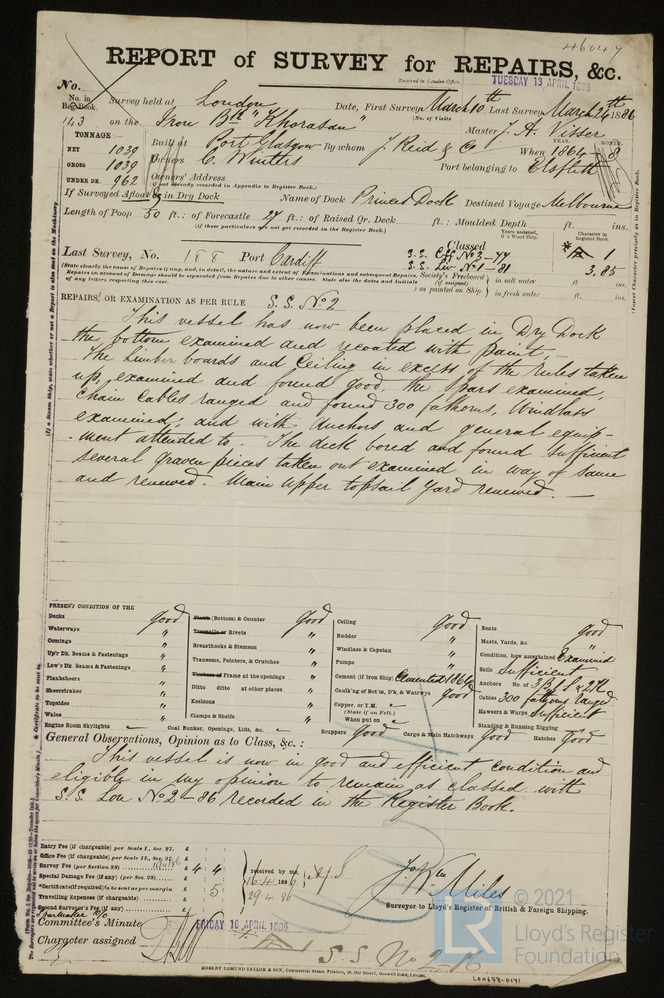 46047
REPORT of SURVEY for REPAIRS, &c.
Received in London Office, TUESDAY 13 APRIL 1886
No.
No. in Reg. Book. Survey held at London Date, First Survey March 10th Last Survey March 26th 1886
(No. of Visits
143 on the Iron Bk "Khorasan" Master J. A. Visser
TONNAGE: Built at Port Glasgow By whom J. Reid & Co When 1864 8
YEAR. MONTH.
NET 1039
GROSS 1039 Owners C. Winters Port belonging to Elsfleth
UNDER DK. 962 Owners' Address
(if not already recorded in Appendix to Register Book.)
If Surveyed Afloat or in Dry Dock Name of Dock Princes Dock Destined Voyage Melbourne
Length of Poop 50 ft.; of Forecastle 27 ft.; of Raised Qr. Deck ft.; Moulded Depth ft. ins.
(if those particulars are not yet recorded in the Register Book.)
Last Survey, No. 188 Port Cardiff
Classed
S.S. Cff No 3-77
S.S. Liv No 1-81
Character in Register Book.
A 1
3,85
Society's Freeboard (if assigned) as painted on Ship in salt water ft. ins.
in fresh water ft. ins.
(State clearly the cause of Repairs if any, and, in detail, the nature and extent of Examinations and subsequent Repairs.
Repairs on account of Damage should be separated from Repairs due to other causes. State also the dates and initials
of any letters respecting this case.
REPAIRS, OR EXAMINATION AS PER RULE S.S. No 2
This vessel has now been placed in Dry Dock
the bottom examined and recoated with paint.
The limber boards and Ceiling in excess of the rules taken
up, examined and found good, the spars examined,
chain cables ranged and found 300 fathoms, Windlass
examined; and with Anchors and general equip-
-ment attended to. The deck bored and found sufficient
several graven pieces taken out examined in way of same
and renewed. Main upper topsail yard renewed. —
PRESENT CONDITION OF THE
Decks good
Waterways "
Comings "
Up'r Dk. Beams & Fastenings "
Low'r Dk. Beams & Fastenings "
Plankshears "
Sheerstrakes "
Topsides "
Wales "
Engine Room Skylights
(Bottom) & Counter good
Treenails or Rivets "
Breasthooks & Stemson "
Transoms, Pointers, & Crutches "
Timbers or Frame at the openings "
Ditto ditto at other places "
Keelsons "
Clamps & Shelfs "
Coal Bunker, Openings, Lids, &c.
Ceiling good
Rudder "
Windlass & Capstan "
Pumps "
Cement (if Iron Ship) Cemented 1886
Caulk'ng of Bot'm, D'k, & Watrwys Good
Copper, or Y.M.
(State if on Felt.)
When put on
Scuppers Good
Boats good
Masts, Yards, &c. "
Condition, how ascertained Examined
Sails Sufficient
Anchors No. of 3 B 1 S & 2 K
Cables 300 fathoms ranged
Hawsers & Warps Sufficient
Standing & Running Rigging
Cargo & Main Hatchways Good Hatches Good
General Observations, Opinion as to Class, &c.:
This vessel is now in good and efficient condition and
eligible in my opinion to remain as classed with
S.S. Lon No 2-86 recorded in the Register Book.
Entry Fee (if chargeable) per Scale I., Sec. 27. £
Office Fee (if chargeable) per Scale II., Sec. 27. £
Survey Fee (per Section 28) £ 4 : 4
Special Damage Fee (if any) (per Sec. 28). £
Certificate (if required) to be sent as per margin £ : 5
Travelling Expenses (if chargeable) £
Second Surveyor's Fee (if any) £
received by me,
16.4 1886
29.4.86
Jo Wm Miles
Surveyor to Lloyd's Register of British & Foreign Shipping.
Committee's Minute FRIDAY 16 APRIL 1886
Character assigned
S.S. No 2-86
ROBERT EDMUND TAYLOR & SON, Commercial Steam Printers, 19, Old Street, Goswell Road, London.
LON677-0171
© 2021
LR
Lloyd's Register
Foundation